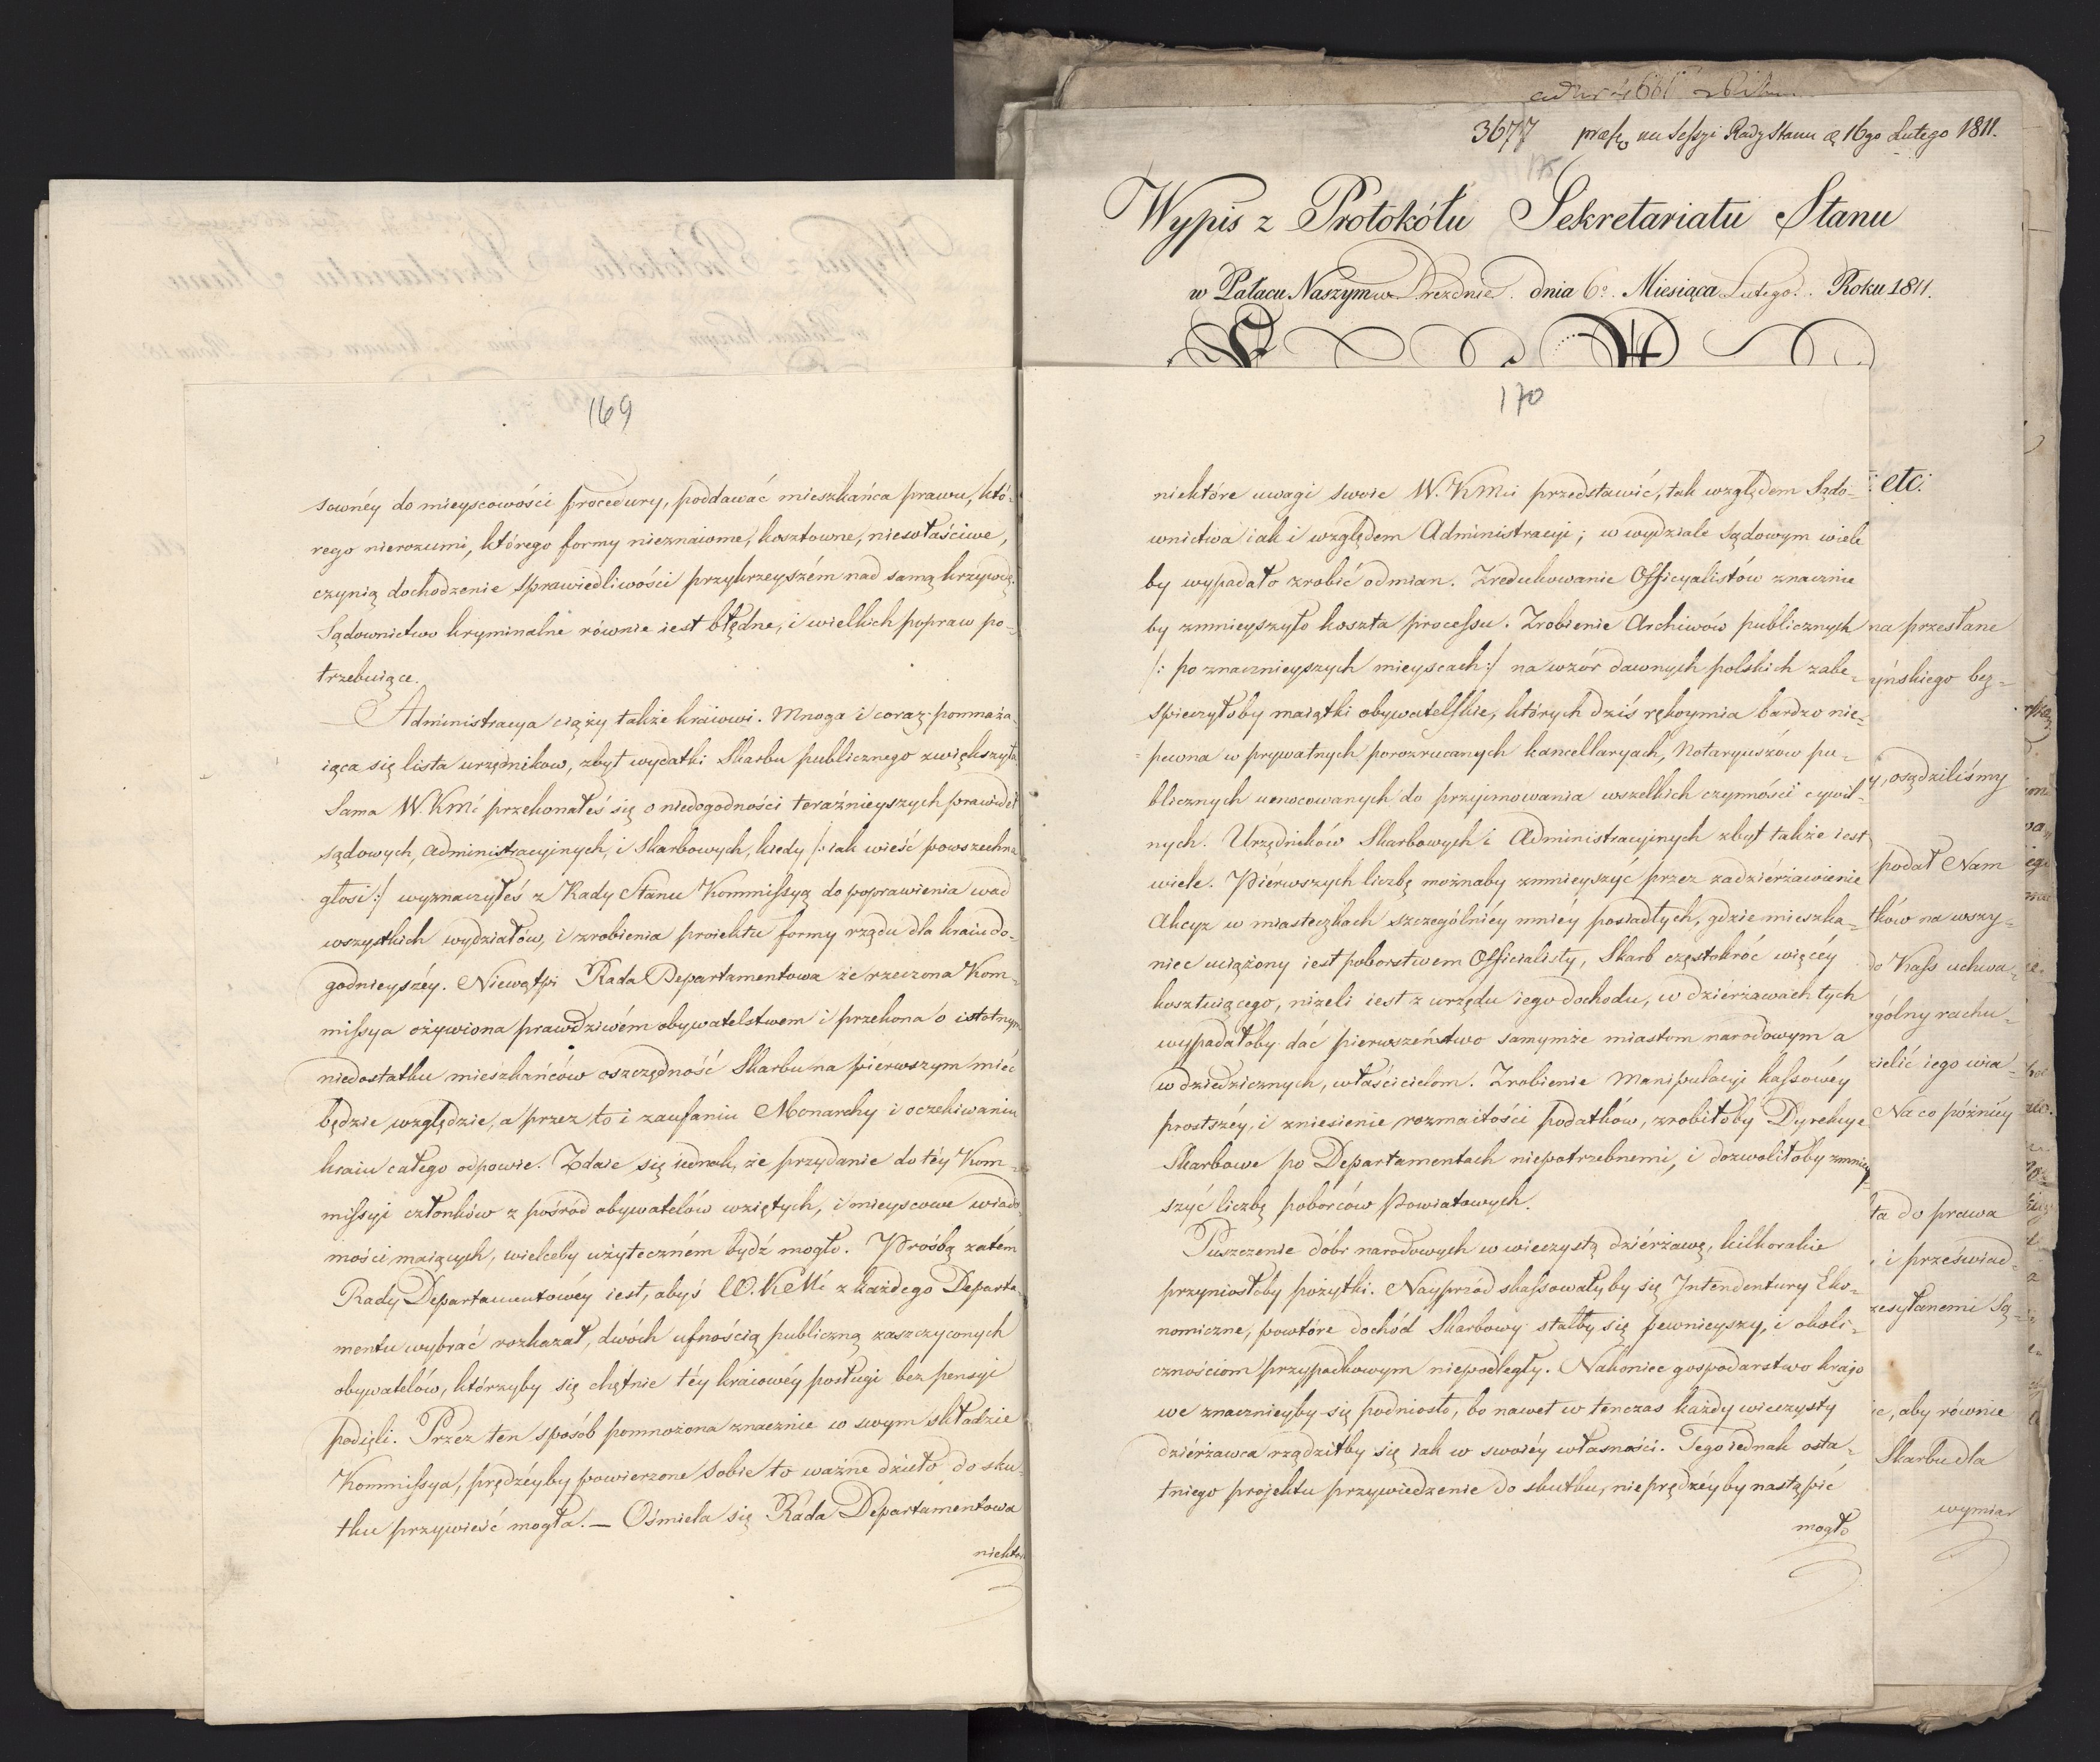 169
sownéy do mieyscowości procedury, poddawać mieszkańca prawu, któ-
rego nierozumi, którego formy nieznaiome, kosztowne, niewłaściwe,
czynią dochodzenie sprawiedliwości przykrzeyszém nad samą krzywdę.
Sądownictwo kryminalne równie iest błędne, i wielkich popraw po-
trzebuiące.
Administracya ciąży także kraiowi. Mnoga i coraz pomnaża-
iąca się lista urzędnikow, zbyt wydatki Skarbu publicznego zwiększyła.
Sama W. KMć przekonałeś się o niedogodności teraźnieyszych prawideł
sądowych, administracyinych, i Skarbowych, kiedy /: iak wieść powszechna
głosi :/ wyznaczyłeś z Rady Stanu Kommissyą do poprawienia wad
wszystkich wydziałów, i zrobienia proiektu formy rządu dla kraiu do-
godnieyszéy. Niewątpi Rada Departamentowa że rzeczona Kom-
missya ożywiona prawdziwém obywatelstwem i przekona o istotnym
niedostatku mieszkańców oszczędność Skarbu na piérwszym mieć
będzie względzie, a przez to i zaufaniu Monarchy i oczekiwaniu
kraiu całego odpowie. Zdaie się iednak, że przydanie do téy Kom-
missyi członków z pośród obywatelów wziętych, i mieyscowe wiado-
mości maiących, wielceby użyteczném bydź mogło. Prośbą zatém
Rady Departamentowéy iest, abyś W. KMć z każdego Departa-
mentu wybrać rozkazał, dwóch ufnością publiczną zaszczyconych
obywatelów, którzyby się chętnie téy kraiowéy posługi bez pensyi
podięli. Przez ten sposób pomnożona znacznie w swym składzie
Kommissya, prędzéyby powierzone Sobie to ważne dzieło do sku-
tku przywieść mogła. — Ośmiela się Rada Departamentowa
niektó
3677 na Sessyi Rady Stanu d. 16go Lutego 1811.
Wypis z Protokółu Sekretariatu Stanu
w Pałacu Naszym w Dreznie. dnia 6o. Miesiąca Lutego. Roku 1811.
170
niektóre uwagi swoie W. KMci przedstawić, tak względem Sądo-
wnictwa iak i względem Administracyi; w wydziale Sądowym wiele
by wypadało zrobić odmian. Zredukowanie Officyalistów znacznie
by zmnieyszyło koszta processu. Zrobienie Archiwów publicznych
/: po znacznieyszych mieyscach :/ na wzór dawnych polskich zabe-
spieczyłoby maiątki obywatelskie, których dziś rękoymia bardzo nie-
pewna w prywatnych porozrucanych kancellaryach, Notaryuszów pu-
blicznych umocowanych do przyimowania wszelkich czynności cywil-
nych. Urzędników Skarbowych i Administracyinych zbyt także iest
wiele. Piérwszych liczbę możnaby zmnieyszyć przez zadzierżawienie
Akcyz w miasteczkach szczególniéy mniéy posiadłych, gdzie mieszka-
niec uciążony iest poborstwem Officialisty, Skarb częstokróć więcéy
kosztuiącego, niżeli iest z urzędu iego dochodu, w dzierżawach tych
wypadałoby dać pierwszeństwo samymże miastom narodowym a
w dziedzicznych, właścicielom. Zrobienie Manipulacyi kassowéy
prostszéy, i zniesienie rozmaitości podatków, zrobiłoby Dyrekcye
Skarbowe po Departamentach niepotrzebnemi, i dozwoliłoby zmniey-
szyć liczbę poborców Powiatowych.
Puszczenie dóbr narodowych w wieczystą dzierżawę, kilkorakie
przyniosłoby pożytki. Nayprzód skassowałyby się Intendentury Eko-
nomiczne, powtóre dochód Skarbowy stałby się pewnieyszy, i okoli-
cznościom przypadkowym niepodległy. Nakoniec gospodarstwo krajo
we znacznieyby się podniosło, bo nawet w tenczas każdy wieczysty
dzierżawca rządziłby się iak w swoiéy własności. Tego iednak osta-
tniego projektu przywiedzenie do skutku, nie prędzéyby nastąpić
mogło
etc:
na przesłane
yńskiego bez-
y, osądziliśmy
podał Nam
tków na wszy-
do Kass uchwa-
gólny rachu-
zielić iego wia-
Na co późniéy
ta do prawa
i przeświad-
zesyłanemi Są-
ie, aby równie
Skarbu dla
wymiar